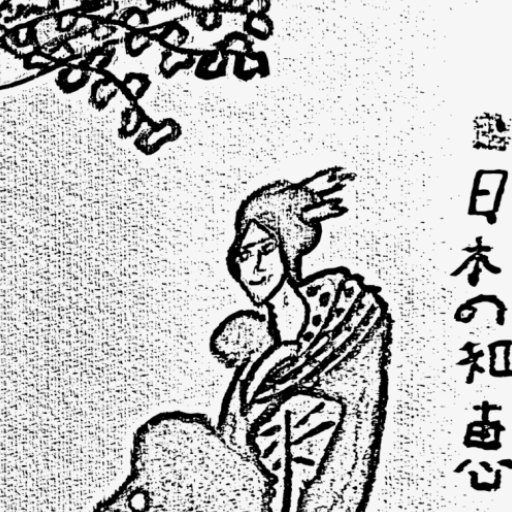 日本の知恵